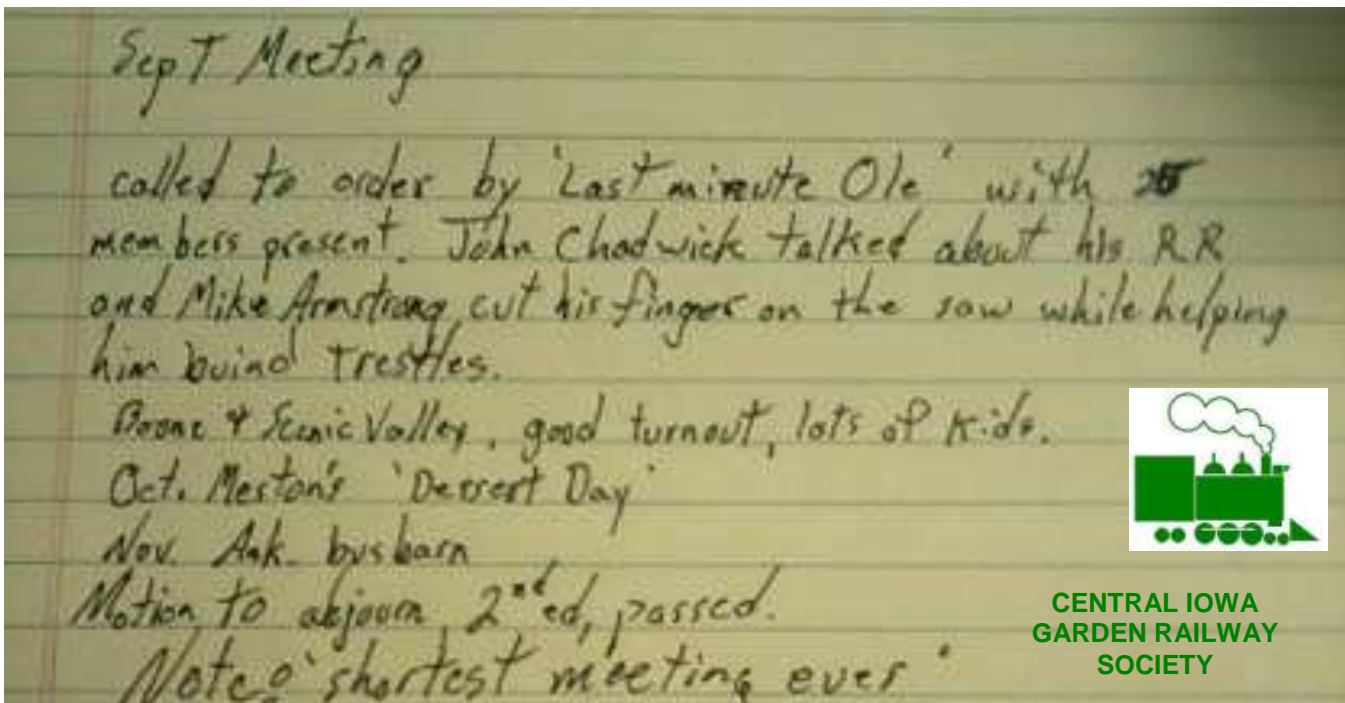 Sept Meeting
called to order by 'Last minute Ole' with
members present. John Chadwick talked about his RR
and Mike Armstrong cut his finger on the saw while helping
him buind trestles.
Boone & Scenic Valley, good turnout, lots of kids.
Oct. Merton's 'Dessert Day'
Nov. Ank. bus barn
Motion to adjourn 2nd ed, passed.
Note: 'shortest meeting ever'
CENTRAL IOWA
GARDEN RAILWAY
SOCIETY